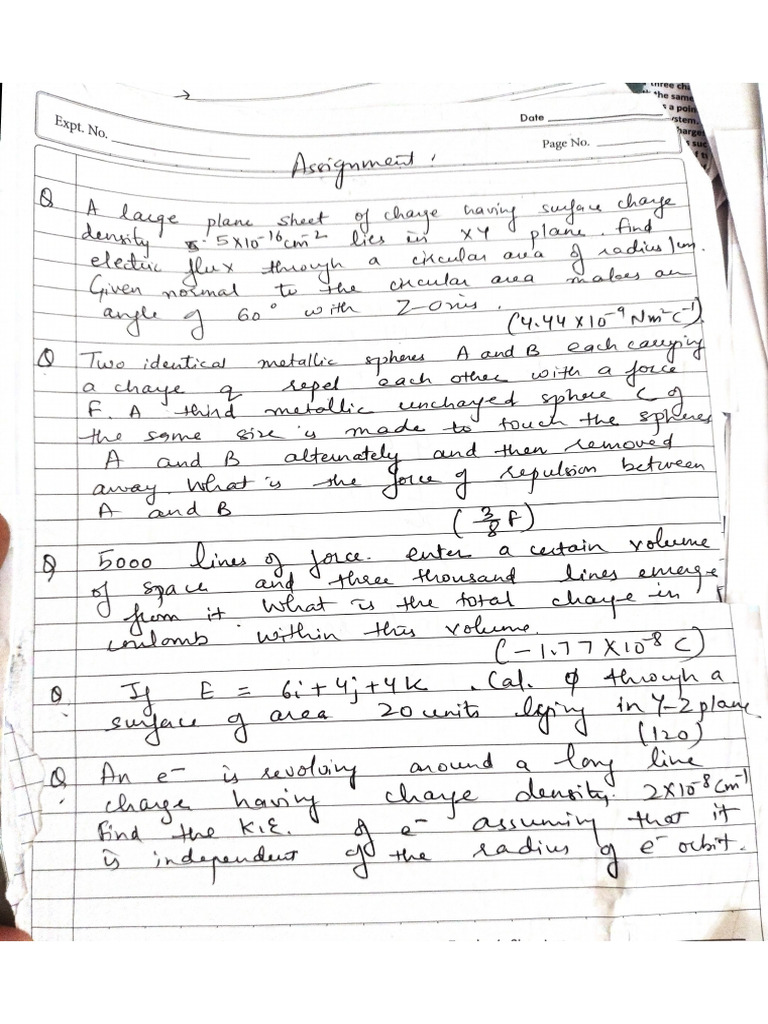 three cha
the same
s a poin
ystem.
harges
suc
Expt. No.
Date
Page No.
Assignment.
Q A large plane sheet of charge having surface charge
density 5×10⁻¹⁶ cm⁻² lies in XY plane. find
electric flux through a circular area of radius 1cm.
Given normal to the circular area makes an
angle of 60° with Z-axis.
(4.44×10⁻⁹ Nm²C⁻¹)
Q Two identical metallic spheres A and B each carrying
a charge q repel each other with a force
F. A third metallic uncharged sphere C of
the same size is made to touch the spheres
A and B alternately and then removed
away. What is the force of repulsion between
A and B
(3/8 F)
Q 5000 lines of force enter a certain volume
of space and three thousand lines emerge
from it. What is the total charge in
coulomb within this volume.
(-1.77×10⁻⁸ C)
Q. If E = 6i+4j+4k. Cal. ϕ through a
surface of area 20 units lying in Y-Z plane
(120)
Q. An e⁻ is revolving around a long line
charge having charge density 2×10⁻⁸ Cm⁻¹
Find the K.E. of e⁻ assuming that it
is independent of the radius of e⁻ orbit.